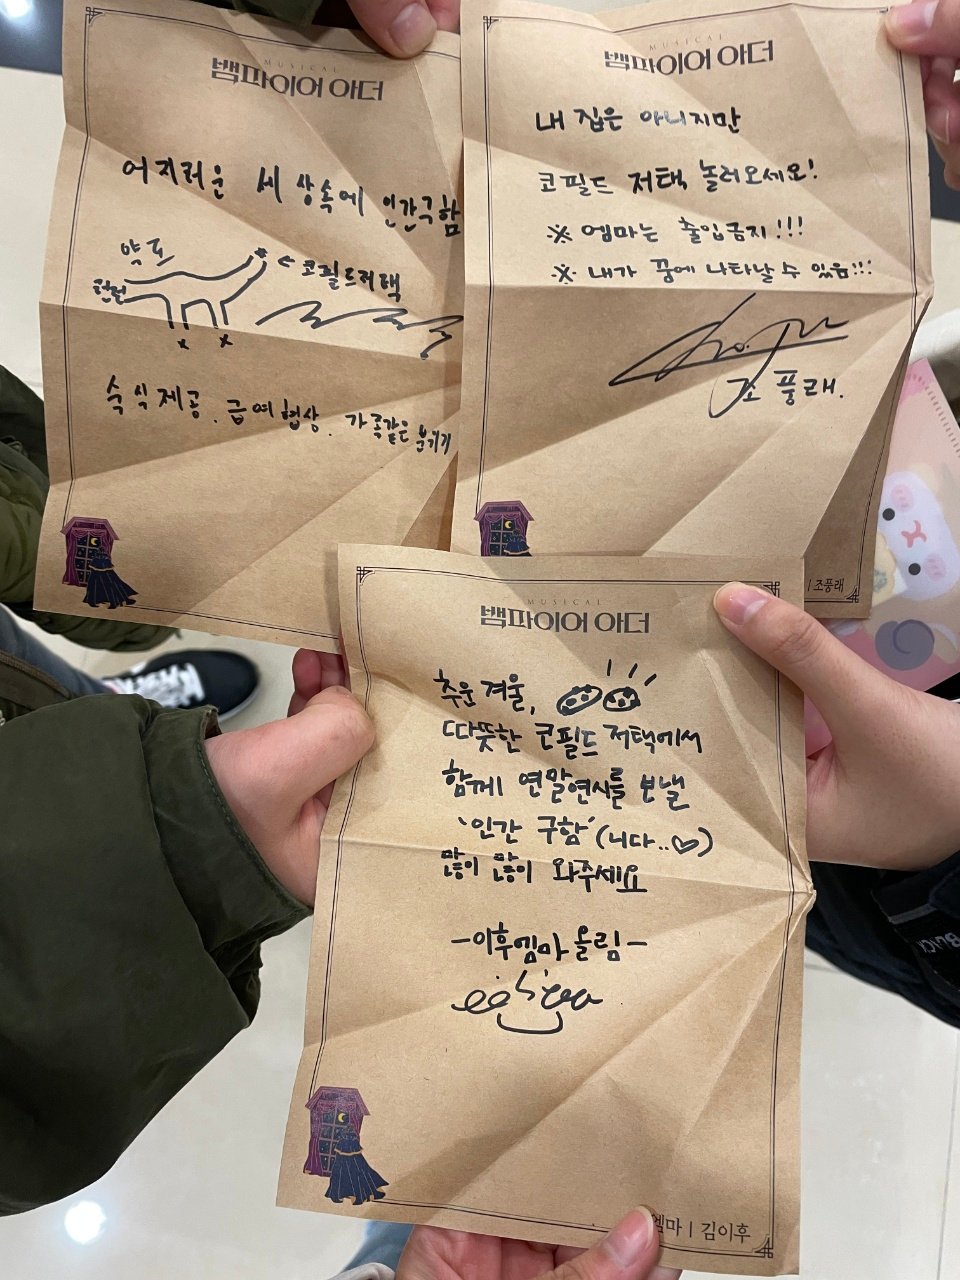 MUSICAL
뱀파이어 아더
어지러운 세상속에 인간구함
약도
코필드저택
런던
숙식제공. 급여협상. 가족같은 분위기
MUSICAL
뱀파이어 아더
내 집은 아니지만
코필드 저택 놀러오세요!
※ 엠마는 출입금지!!!
※ 내가 꿈에 나타날 수 있음!!!
조풍래.
| 조풍래
MUSICAL
뱀파이어 아더
추운 겨울,
따뜻한 코필드 저택에서
함께 연말연시를 보낼
'인간 구함' (니다..♡)
많이 많이 와주세요
-이후엠마 올림-
엠마 | 김이후